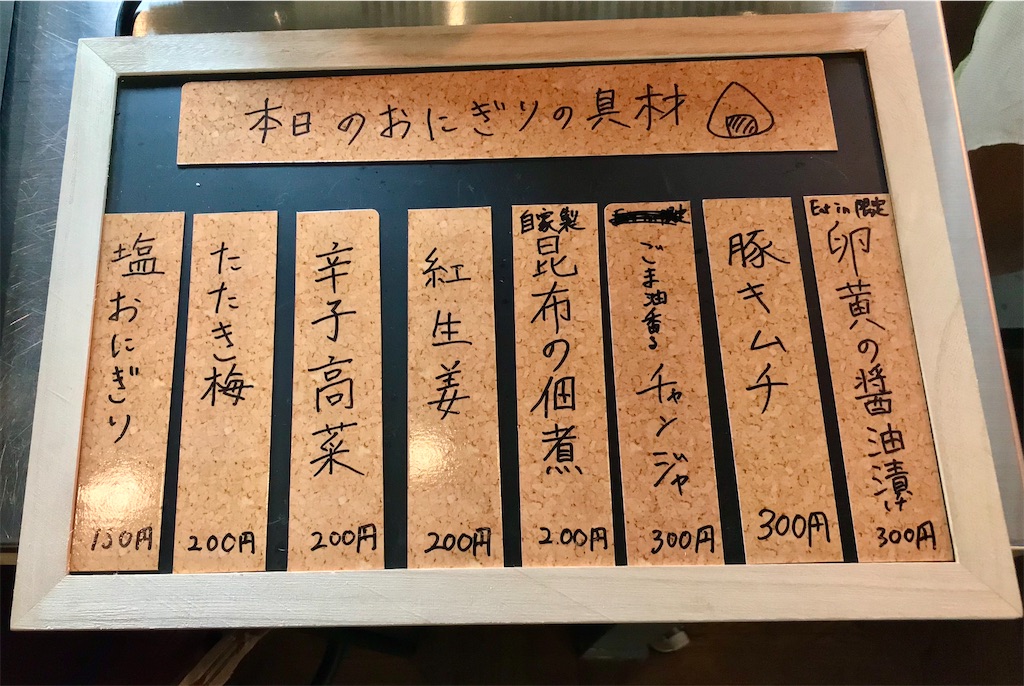 本日のおにぎりの具材
Eat in 限定
卵黄の醤油漬け
300円
豚キムチ
300円
ごま油香る
チャンジャ
300円
自家製
昆布の佃煮
200円
紅生姜
200円
辛子高菜
200円
たたき梅
200円
塩おにぎり
150円